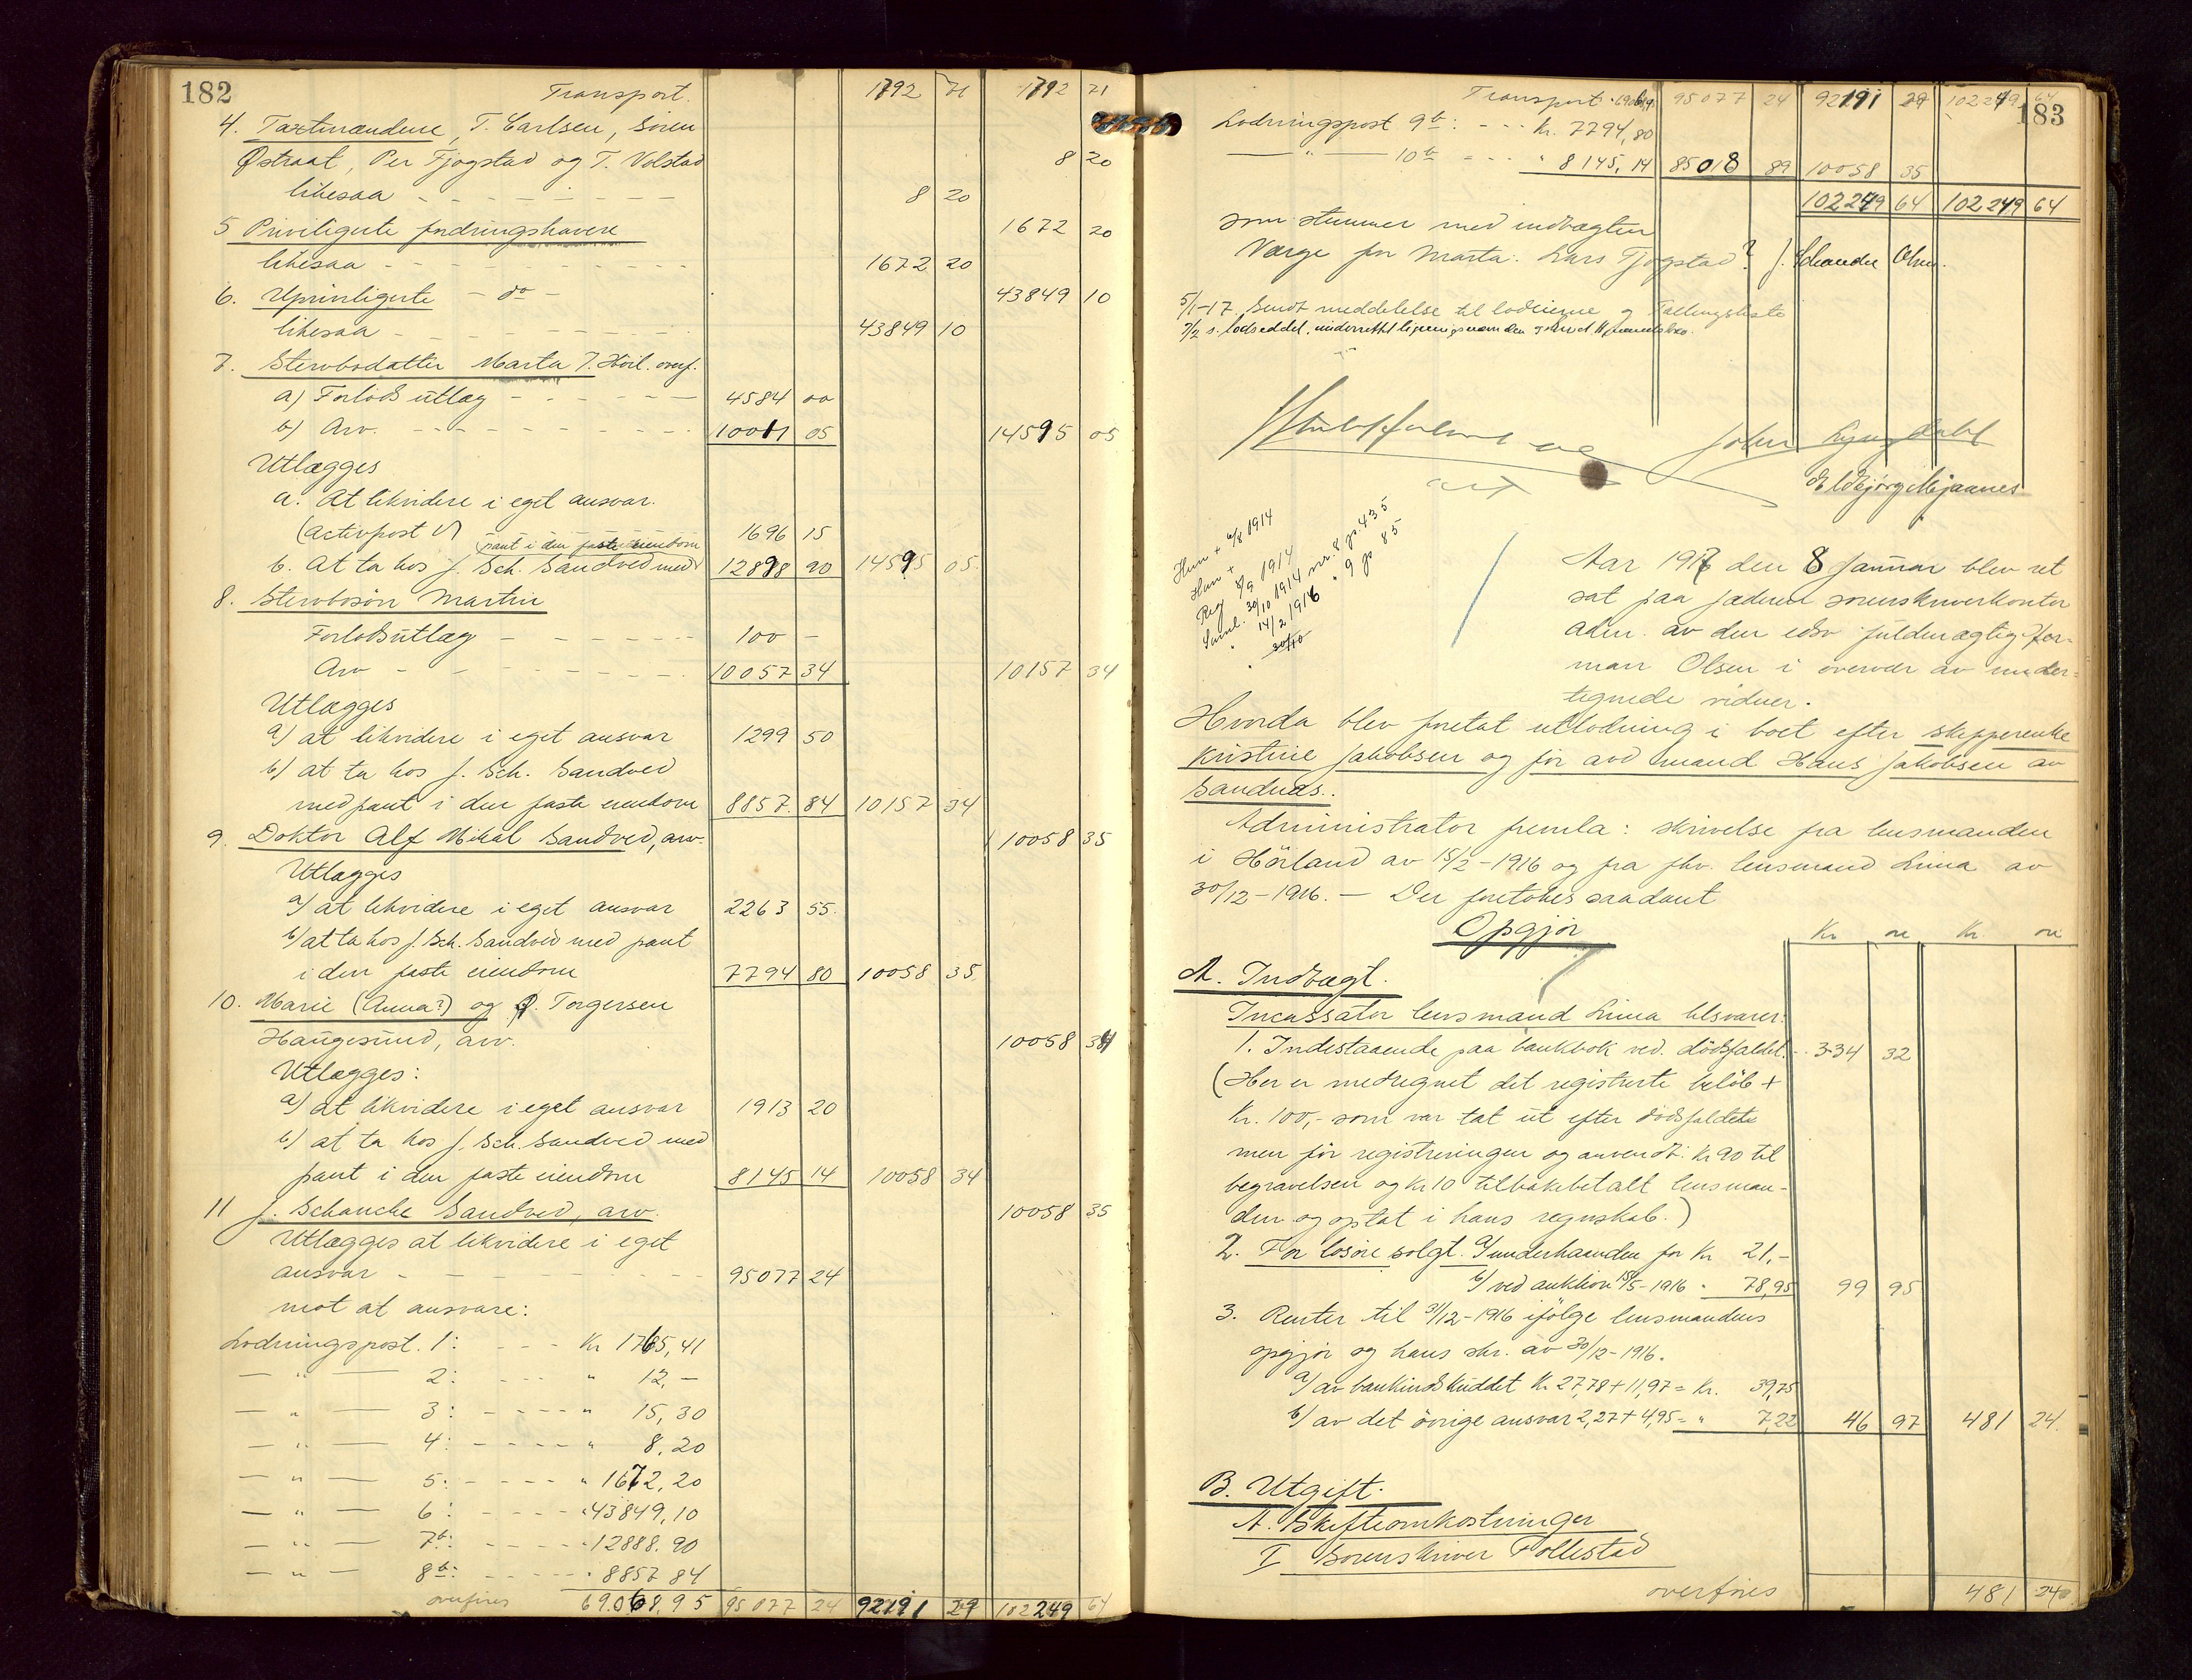 182
Transport. 1792 71 1792 71
4. Taxtmændene, T. Carlsen, Sören
Østraat, Per Fjogstad og T. Volstad 8 20
likesaa 8 20
5 Priviligerte fordringshavere 1672 20
likesaa 1672 20
6. Upriviligerte - do - 43849 10
likesaa 43849 10
7. Stervbodatter Marta
a) Forlods utlæg 4584 00
b) Arv. 10011 05 14595 05
Utlægges
a. At likvidere i eget ansvar.
(Activpost V) 1696 15
pant i den faste eiendom
b. At ta hos J. Sch. Sandved med 12898 90 14595 05
8. Stervbosön Martin
Forlodsutlæg 100 -
Arv 10057 34 10157 34
Utlægges
a) at likvidere i eget ansvar 1299 50
b) at ta hos J. Sch. Sandved
med pant i den faste eiendom 8857. 84 10157 34
9. Doktor Alf Mikal Sandved, arv. 10058 35
Utlægges
a) at likvidere i eget ansvar 2263 55.
b) at ta hos J. Sch. Sandved med pant
i den faste eiendom 7794 80 10058 35.
10. Marie (Anna?) og Torgersen
Haugesund, arv. 10058 34
Utlægges:
a) at likvidere i eget ansvar 1913 20
b) at ta hos J. Sch. Sandved med
pant i den faste eiendom 8145 14 10058 34
11 J. Schanche Sandved, arv. 10058 35
Utlægges at likvidere i eget
ansvar 95077 24
mot at ansvare:
Lodningspost. 1: - - - Kr 1765,41
— " — 2: - - - " 12,-
— " — 3: - - - - " 15,30
— " — 4: - - - - " 8,20
— " — 5: - - - - " 1672,20
— " — 6: - - - - " 43849,10
— " — 7b: - - - - " 12888.90
— " — 8b: - - - - " 8857 84
overføres 69.068,95 95077 24 92191 29 102249 64
183
Transport. 95077 24 92191 29 102249 64
Lodningspost 9b: - - - Kr. 7794,80
— " — 10b = - - - " 8145,14 85018 89 10058 35
102249 64 102249 64
som stemmer med indtægten
Værge for Marta: Lars Fjogstad? J. Schanche Olsen.
5/1-17. Sendt meddelelse til lodeierne
John Lyngdahl
Eldbjørg Mjaanes
Han + 6/8 1914
Hun +
Reg 8/9 1914
Saml. 30/10 1914 nr. 8 pg. 435
" 14/2 1916 " 9 pg 85
" 30/10
Aar 1917 den 8 Januar blev ret
sat paa Jæderen sorenskriverkontor
adm. av den edsv fuldmægtig Her-
man Olsen i overvær av under-
tegnede vidner.
Hvorda blev foretat utlodning i boet efter skipperenke
Kristine Jakobsen og før avd mand Hans Jakobsen av
Sandnæs..
Administrator fremla: skrivelse fra lensmanden
i Höiland av 15/2-1916 og fra fhv. lensmand Lima av
30/12-1916. — Der foretokes saadant
Opgjör
Kr øre Kr øre
A. Indtægt.
Incassator lensmand Lima tilsvarer:
1. Indestaaende paa bankbok ved. dödsfaldet. 334 32
(Her er medregnet det registrerte belöb +
Kr. 100,- som var tat ut efter dödsfaldet
men för registreringen og anvendt: Kr 90 til
begravelsen og Kr 10 tilbakebetalt lensman-
den og optat i hans regnskab.)
2. For lösöre solgt. a) underhaanden for Kr 21,-
b) ved auktion 15/5-1916 " 78,95 99 95
3. Renter til 31/12-1916 ifölge lensmandens
opgjör og hans skr. av 30/12-1916.
a) av bankindskuddet Kr 27,78 + 11,97 = Kr. 39,75
b) av det övrige ansvar 2,27 + 4,95 = " 7,22 46 97 481 24.
B. Utgift.
A. Skifteomkostninger
I Sorenskriver Tollestad
overføres 481 24